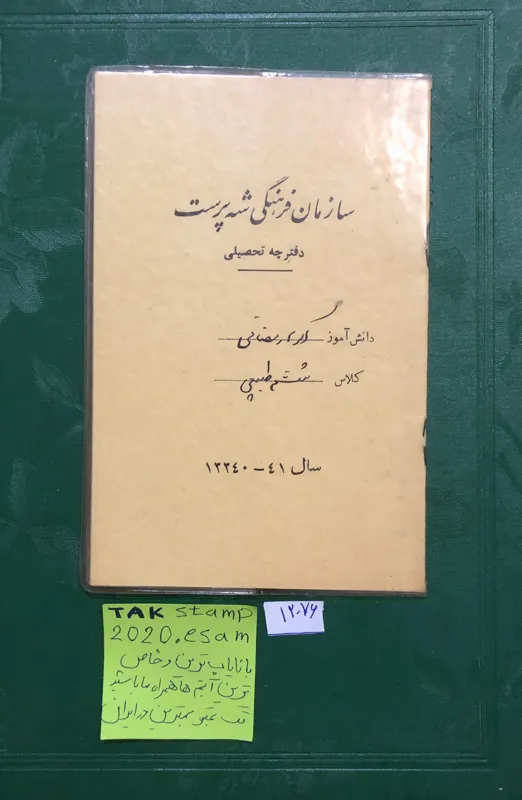 سازمان فرهنگی شه پرست
دفترچه تحصیلی
دانش آموز
کلاس ششم طبیعی
سال ٤١ - ١٣٣٤٠
TAK stamp
2020.esam
با نایاب ترین و خاص
ترین آیتم ها همراه ما باشید
تک تمبر بهترین در ایران
١٢٠٧٦